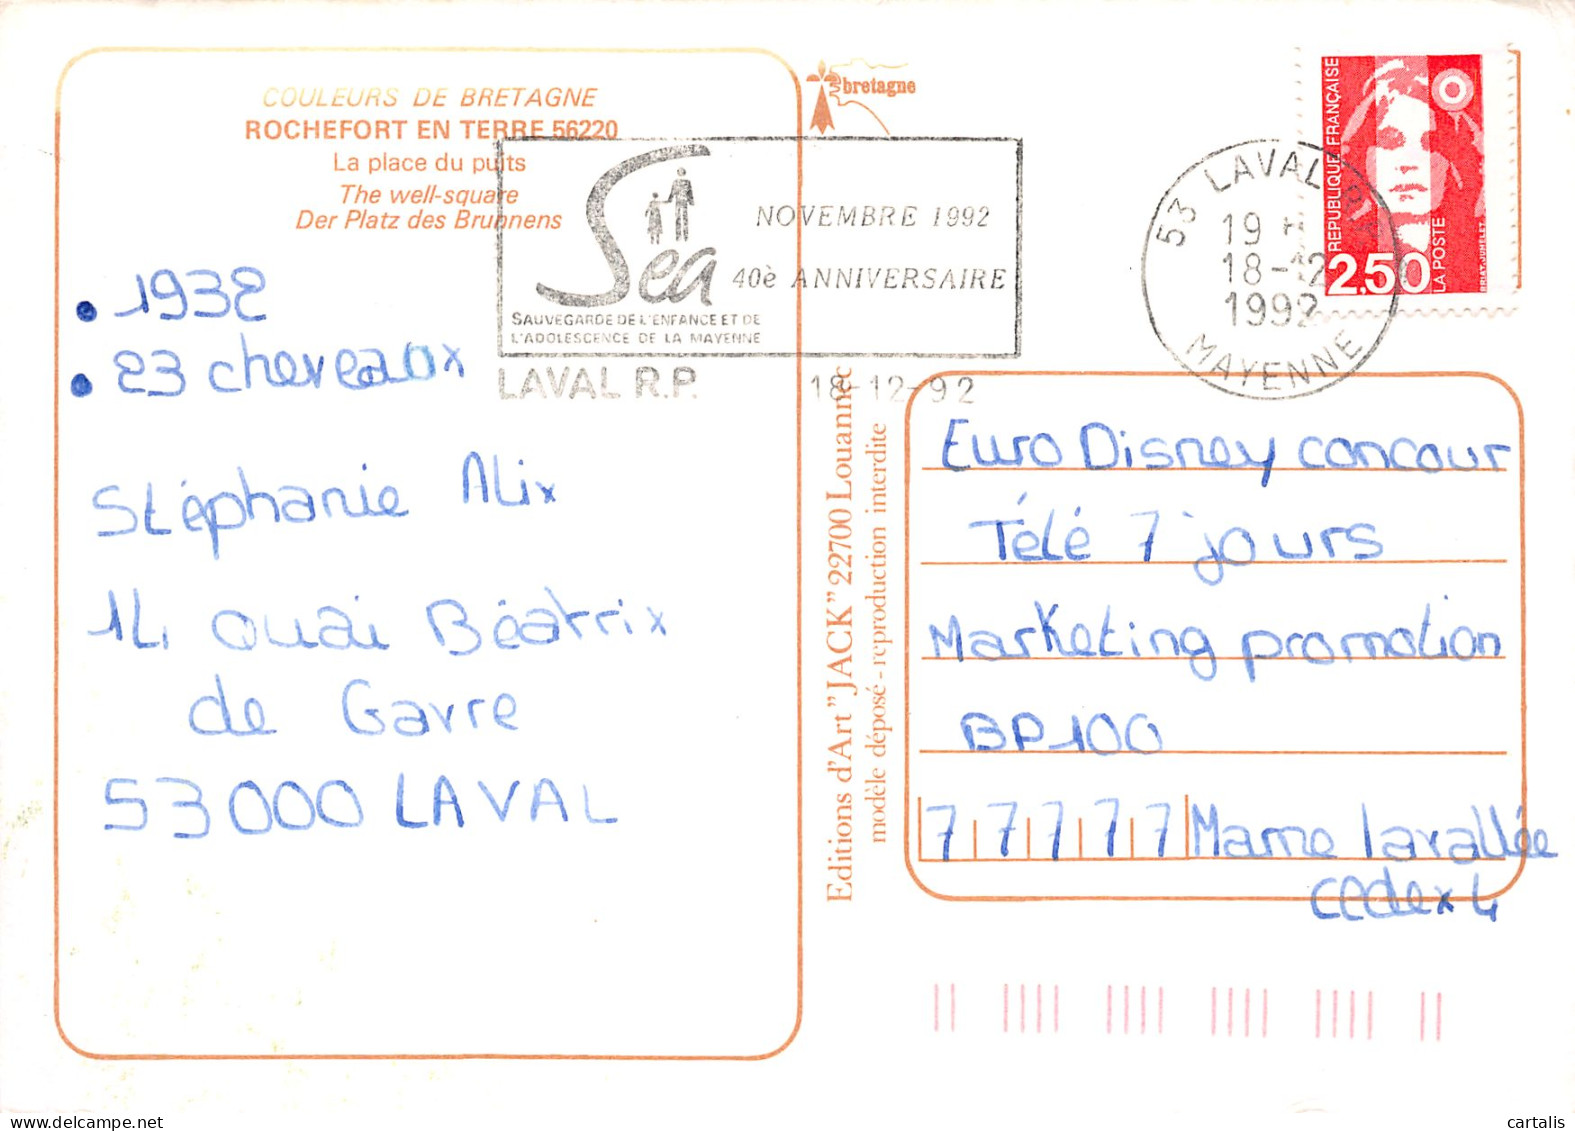 COULEURS DE BRETAGNE
ROCHEFORT EN TERRE 56220
La place du puits
The well-square
Der Platz des Brunnens
bretagne
Sea
SAUVEGARDE DE L'ENFANCE ET DE
L'ADOLESCENCE DE LA MAYENNE
NOVEMBRE 1992
40è ANNIVERSAIRE
LAVAL R.P.
18-12-92
53 LAVAL
19 H
18-12
1992
MAYENNE
REPUBLIQUE FRANÇAISE
2,50
LA POSTE
BRIAT-JUMELET
• 1932
• 23 cheveaux
Stéphanie Alix
14, Quai Béatrix
de Gavre
53000 LAVAL
Editions d'Art "JACK" 22700 Louannec
modèle déposé - reproduction interdite
Euro Disney concour
Télé 7 jours
Marketing promotion
BP 100
77777 Marne lavallée
cedex 4
cartalis